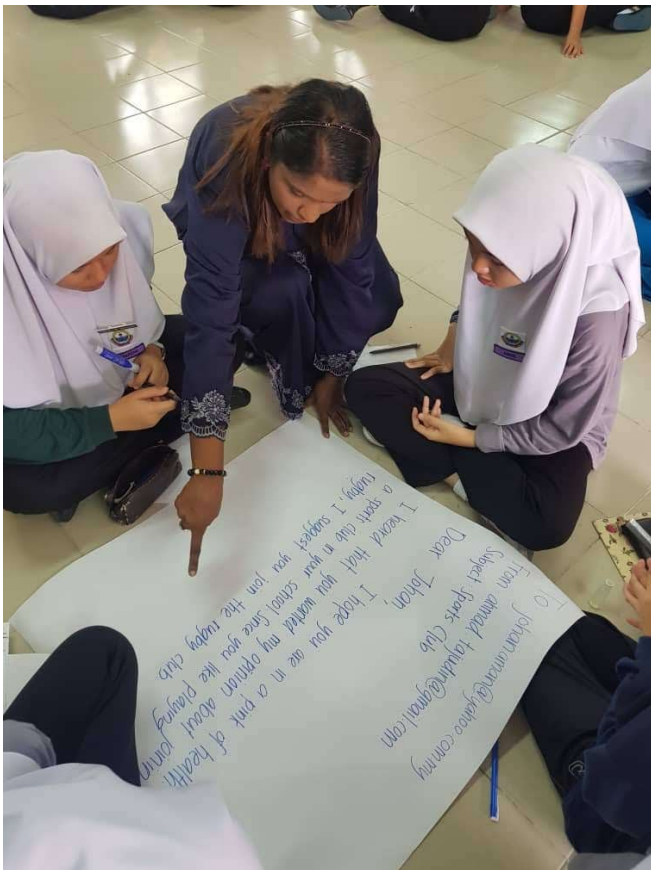 To johanaman@yahoo.com.my
From ahmad tajudin@gmail.com
Subject Sports Club
Dear Johan,
I hope you are in a pink of health
I heard that you wanted my opinion about joinin
a sports club in your school. Since you like playing
rugby, I suggest you join the rugby club